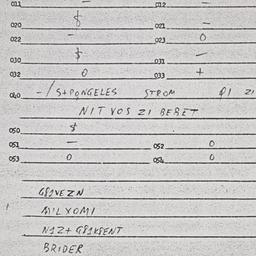 011 — 012
020 $ 021 —
022 — 023 0
030 $ 031 —
032 0 033 +
040 -/S+PONGELES STROM 01 21
NIT VOS 21 BERET
050 $
051 — 052 0
053 0 054 0
G81VEZN
MILYOMI
N1Z+ G81KSENT
BRIDER